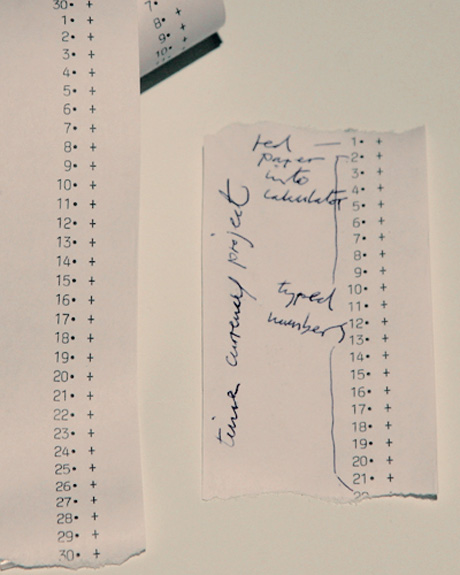 30• +
1• +
2• +
3• +
4• +
5• +
6• +
7• +
8• +
9• +
10• +
11• +
12• +
13• +
14• +
15• +
16• +
17• +
18• +
19• +
20• +
21• +
22• +
23• +
24• +
25• +
26• +
27• +
28• +
29• +
30• +
7• +
8• +
9• +
10• +
time currency project
fed
paper
into
calculator
typed
numbers
1• +
2• +
3• +
4• +
5• +
6• +
7• +
8• +
9• +
10• +
11• +
12• +
13• +
14• +
15• +
16• +
17• +
18• +
19• +
20• +
21• +